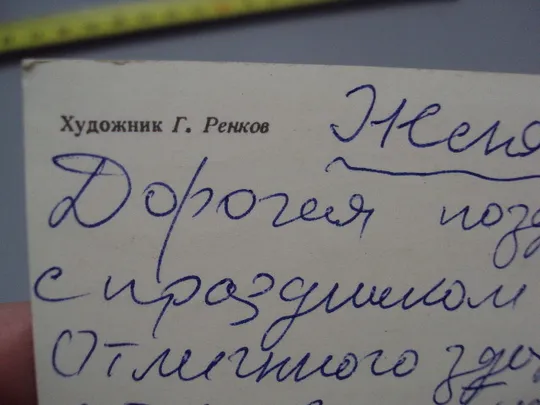 Художник Г. Ренков
Женя
Дорогая позд
с праздником
Отличного здо